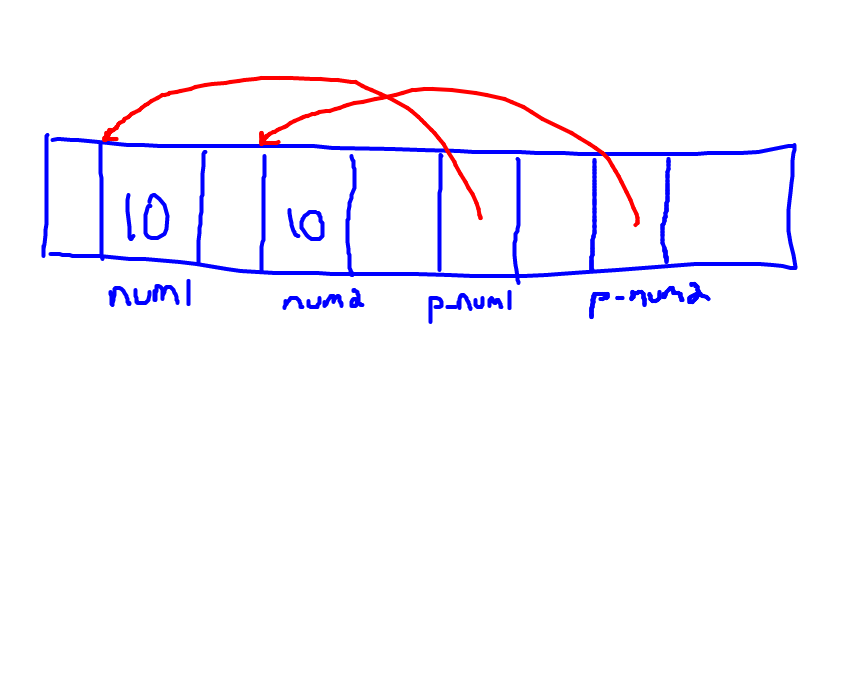 10 10
num1 num2 p-num1 p-num2